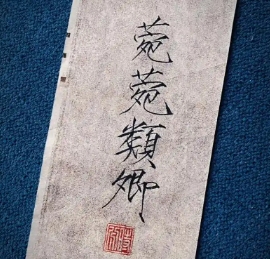 菀菀類卿